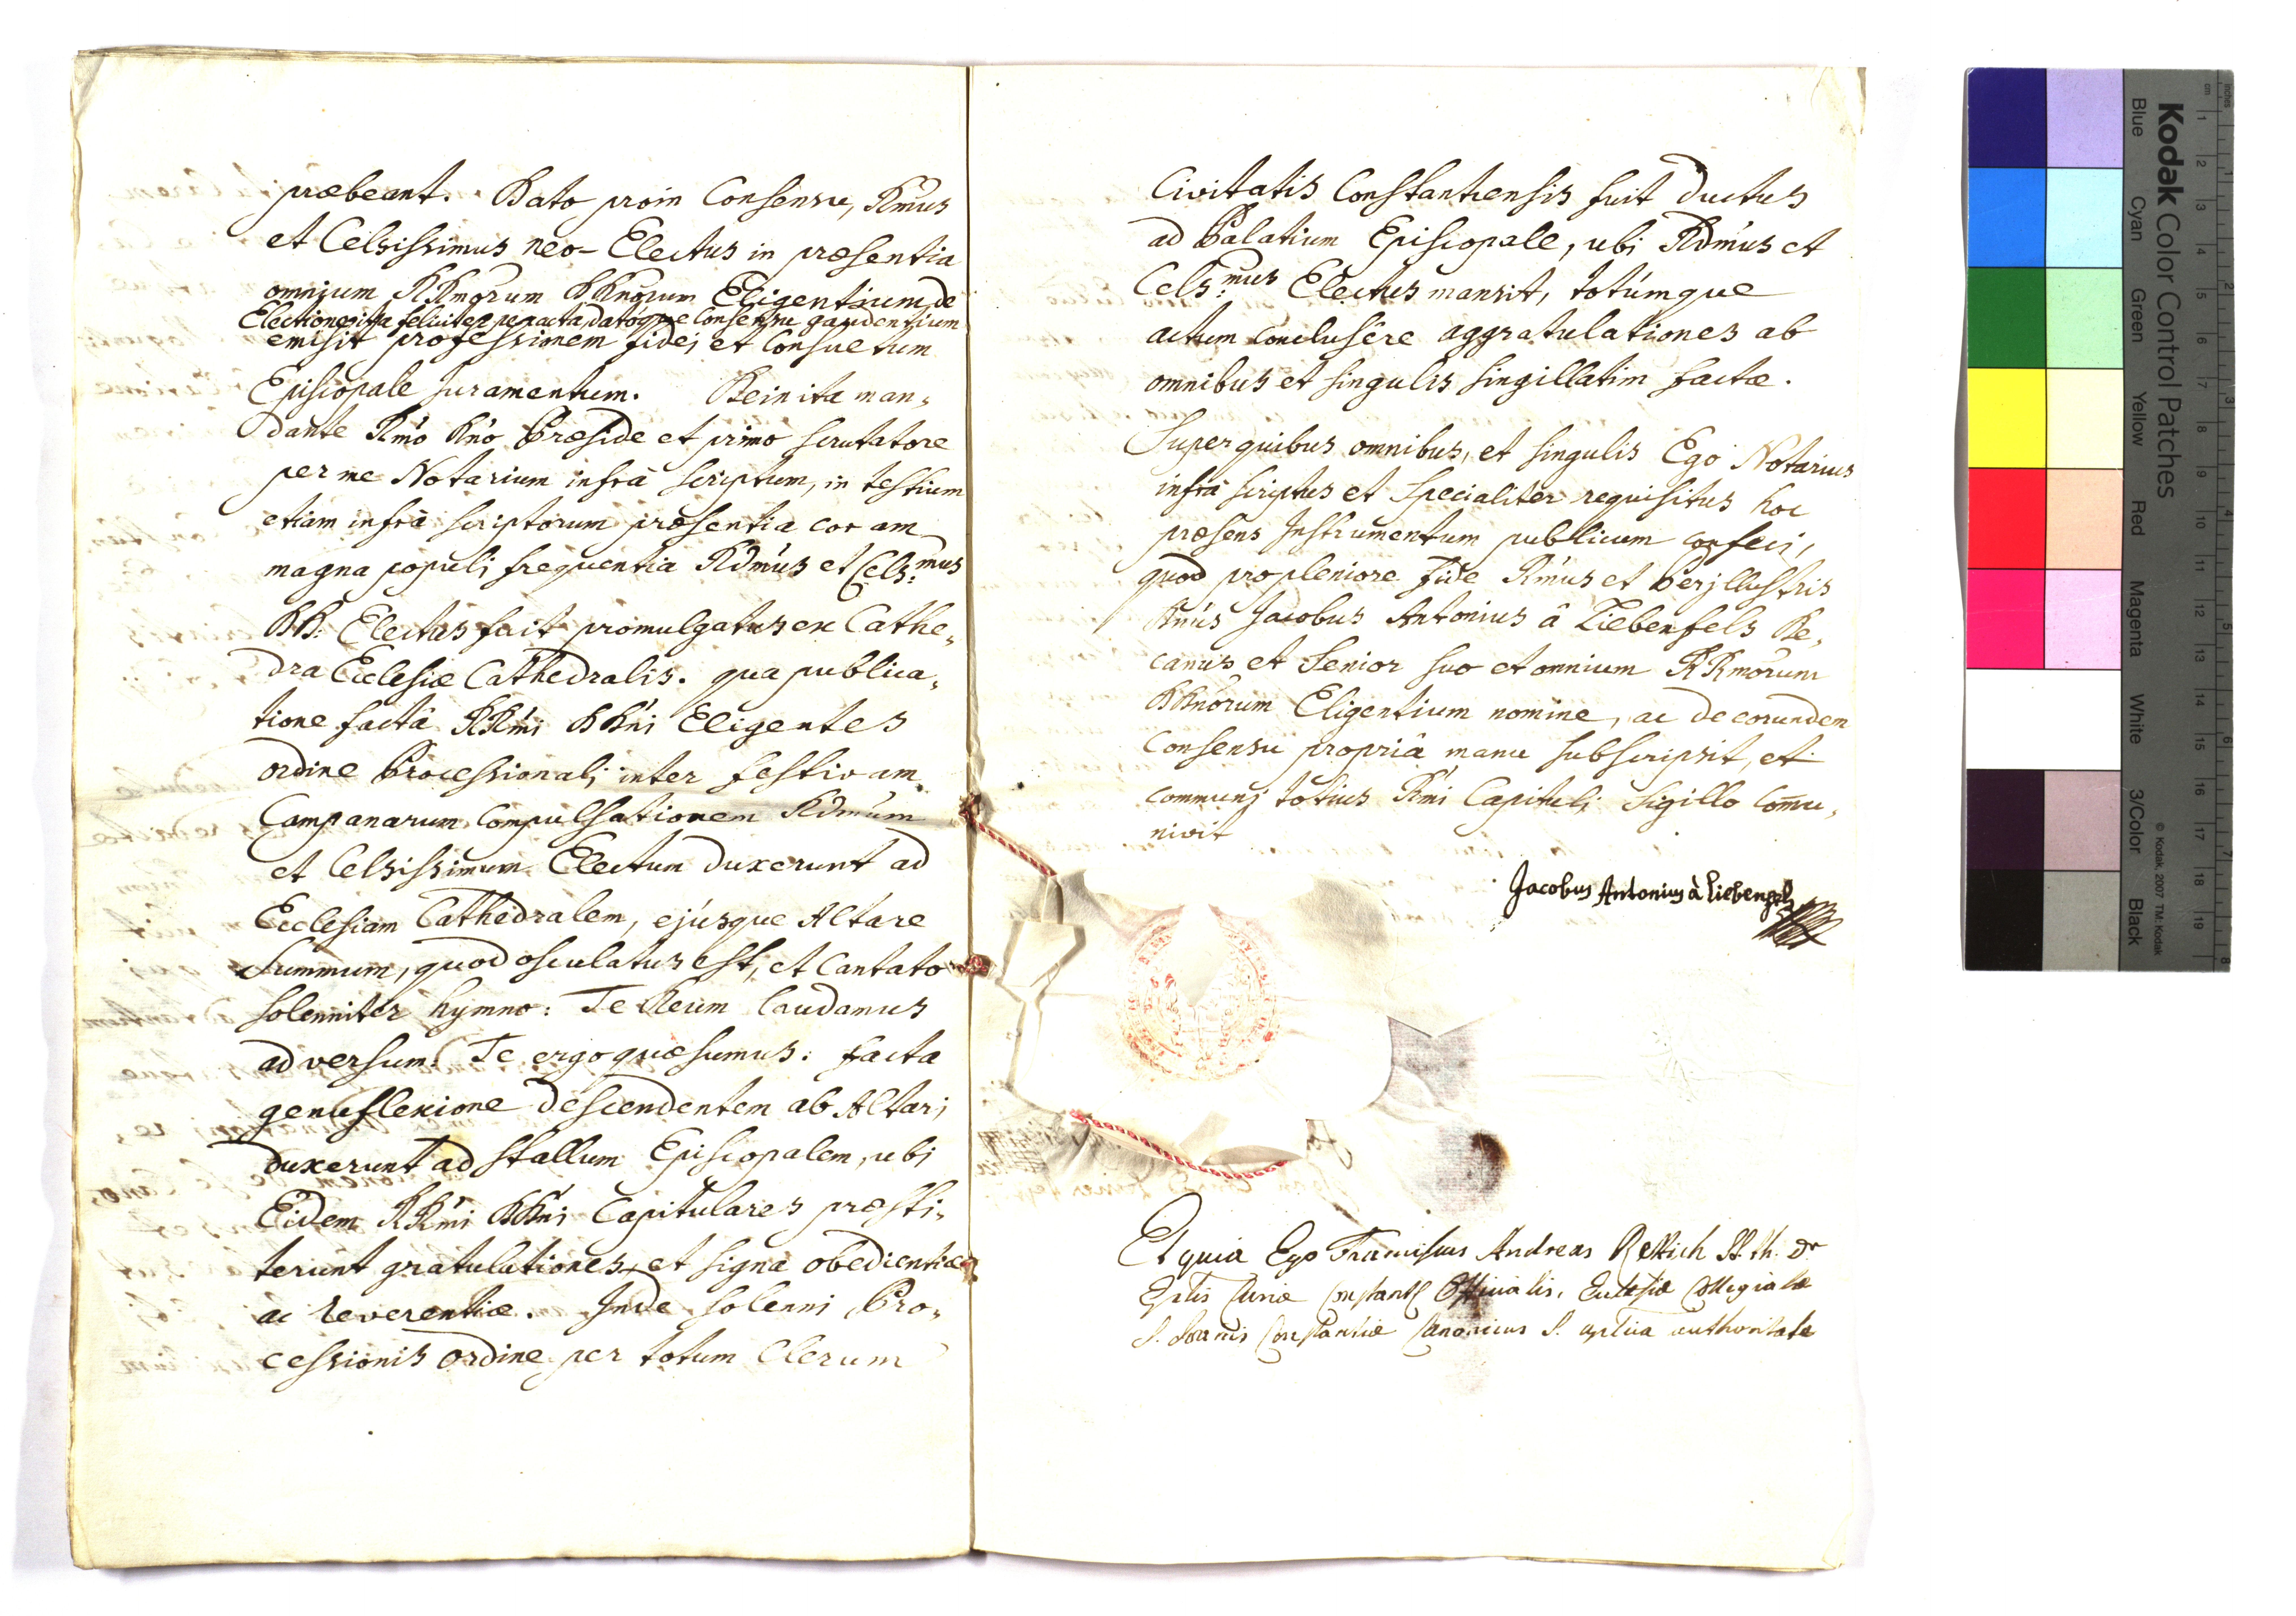 præbeant. Dato proin Consensu, Rmus
et Celsissimus neo-Electus in præsentia
omnium RRmorum DDnorum Eligentium de
Electione ita feliciter peracta, datoque Consensu gaudentium
emisit professionem fidei et Consuetum
Episcopale Juramentum. Dein ita man,
dante Rmo Dno Præside et primo scrutatore
per me Notarium infrà scriptum, in testium
etiam infrà scriptorum præsentia coram
magna populi frequentia Rdmus et Cels:mus
DD: Electus fuit promulgatus ex Cathe,
dra Ecclesiæ Cathedralis. qua publica,
tione factâ RRmi DDni Eligentes
ordine Processionali inter festivam
Campanarum Compulsationem Rdmum
et Celsissimum Electum duxerunt ad
Ecclesiam Cathedralem, ejusque Altare
Summum, quod osculatus est, et Cantato
solenniter hymno: Te Deum laudamus
ad versum: Te ergo quæsumus: facta
genuflexione descendentem ab Altari
duxerunt ad stallum Episcopalem, ubi
Eidem RRmi DDni Capitulares præsti,
terunt gratulationes, et signa obedientiæ
ac reverentiæ. Inde solenni Pro,
cessionis ordine per totum Clerum
Civitatis Constantiensis fuit ductus
ad Palatium Episcopale, ubi Rdmus et
Cels:mus Electus mansit, totumque
actum conclusêre aggratulationes ab
omnibus et singulis singillatim factæ.
Super quibus omnibus, et singulis Ego Notarius
infrà scriptus et specialiter requisitus hoc
præsens Instrumentum publicum confeci,
quod pro pleniore fide Rmus et Perjllustris
Dnus Jacobus Antonius â Liebenfels De,
canus et Senior suo et omnium RRmorum
DDnorum Eligentium nomine, ac de eorundem
Consensu propriâ manu subscripsit, et
communi totius Rmi Capituli Sigillo Comu,
nivit
Jacobus Antonius à Liebenfels
Et quia Ego Franciscus Andreas Rettich SS. th. Dr
Eplis Curiæ Constants Officialis, Ecclesiæ Collegiatæ
S. Joannis Constantiæ Canonicus S. aplica authoritate
Kodak Color Control Patches
Blue Cyan Green Yellow Red Magenta White 3/Color Black
© Kodak, 2007 TM: Kodak
inches
cm
1 2 3 4 5 6 7 8 9 10 11 12 13 14 15 16 17 18 19
1 2 3 4 5 6 7 8